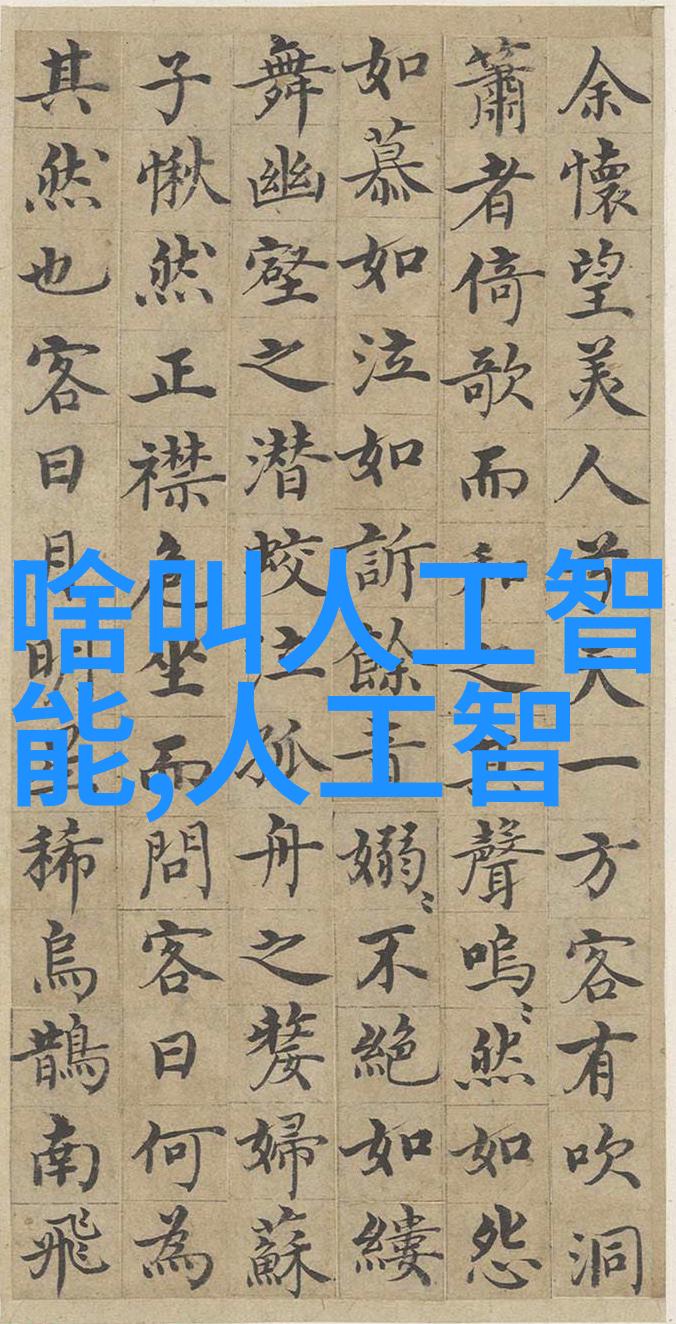 余懷望美人兮天一方客有吹洞
簫者倚歌而和之其聲嗚〻然如怨
如慕如泣如訴餘音嫋〻不絶如縷
舞幽壑之潜蛟泣孤舟之嫠婦蘇
子愀然正襟危坐而問客曰何為
其然也客曰月明星稀烏鵲南飛
啥叫人工智
能,人工智